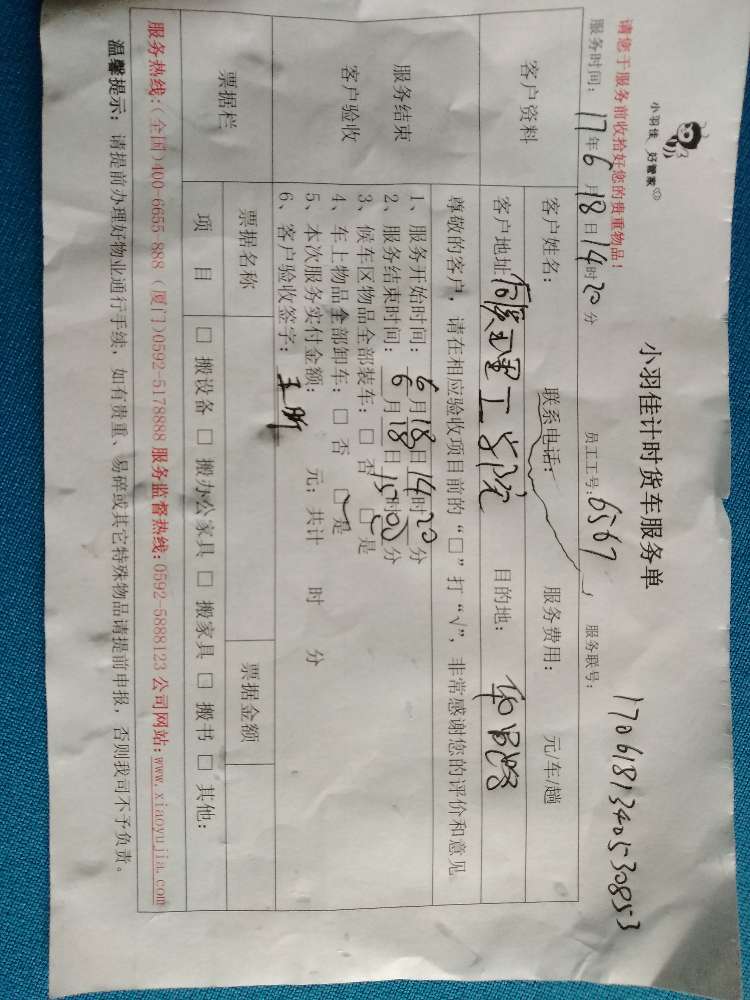 小羽佳 好管家
小羽佳计时货车服务单
请您于服务前收拾好您的贵重物品！
员工工号：6567 服务联号：1706181340530853
服务时间：17年6月18日14时20分
客户资料
客户姓名： 联系电话： 服务费用： 元/车/趟
客户地址：理工学院 目的地：
服务结束
客户验收
尊敬的客户，请在相应验收项目前的“□”打“√”，非常感谢您的评价和意见
1、服务开始时间：6月18日14时20分
2、服务结束时间：6月18日15时00分
3、候车区物品全部装车：□ 否 □ 是
4、车上物品全部卸车：□ 否 □ 是
5、本次服务实付金额： 元；共计 时 分
6、客户验收签字：
票据栏
票据名称 票据金额
项 目 □ 搬设备 □ 搬办公家具 □ 搬家具 □ 搬书 □ 其他：
服务热线：（全国）400-6655-888（厦门）0592-5178888 服务监督热线：0592-5888123 公司网站：www.xiaoyujia.com
温馨提示：请提前办理好物业通行手续，如有贵重、易碎或其它特殊物品请提前申报，否则我司不予负责。